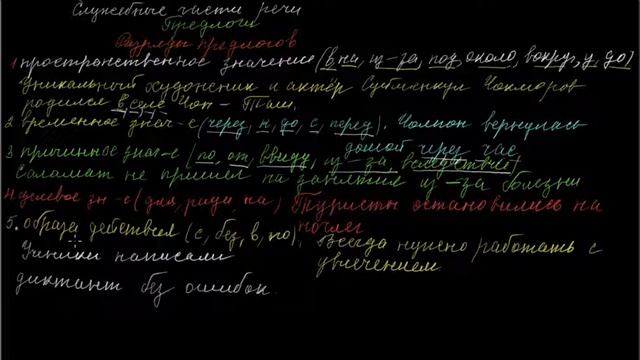 Служебные части речи
Предлоги
Разряды предлогов
1 пространственное значение (в, на, из-за, под, около, вокруг, у, до)
Уникальный художник и актёр Суйменкул Чокморов
родился в селе Чон-Таш.
2 временное знач-е (через, к, до, с, перед). Чолпон вернулась
домой через час
3 причинное знач-е (по, от, ввиду, из-за, вследствие)
Саламат не пришел на занятия из-за болезни
4 целевое зн-е (для, ради, на) Туристы остановились на
ночлег
5. образа действия (с, без, в, по). Всегда нужно работать с
увлечением
Ученики написали
диктант без ошибок